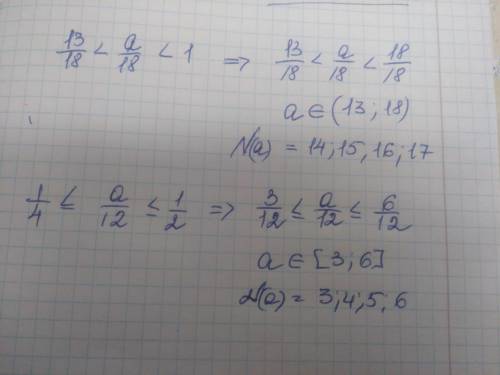 13/18 < a/18 < 1 => 13/18 < a/18 < 18/18
a ∈ (13; 18)
N(a) = 14; 15, 16; 17
1/4 ≤ a/12 ≤ 1/2 => 3/12 ≤ a/12 ≤ 6/12
a ∈ [3; 6]
N(a) = 3; 4; 5, 6